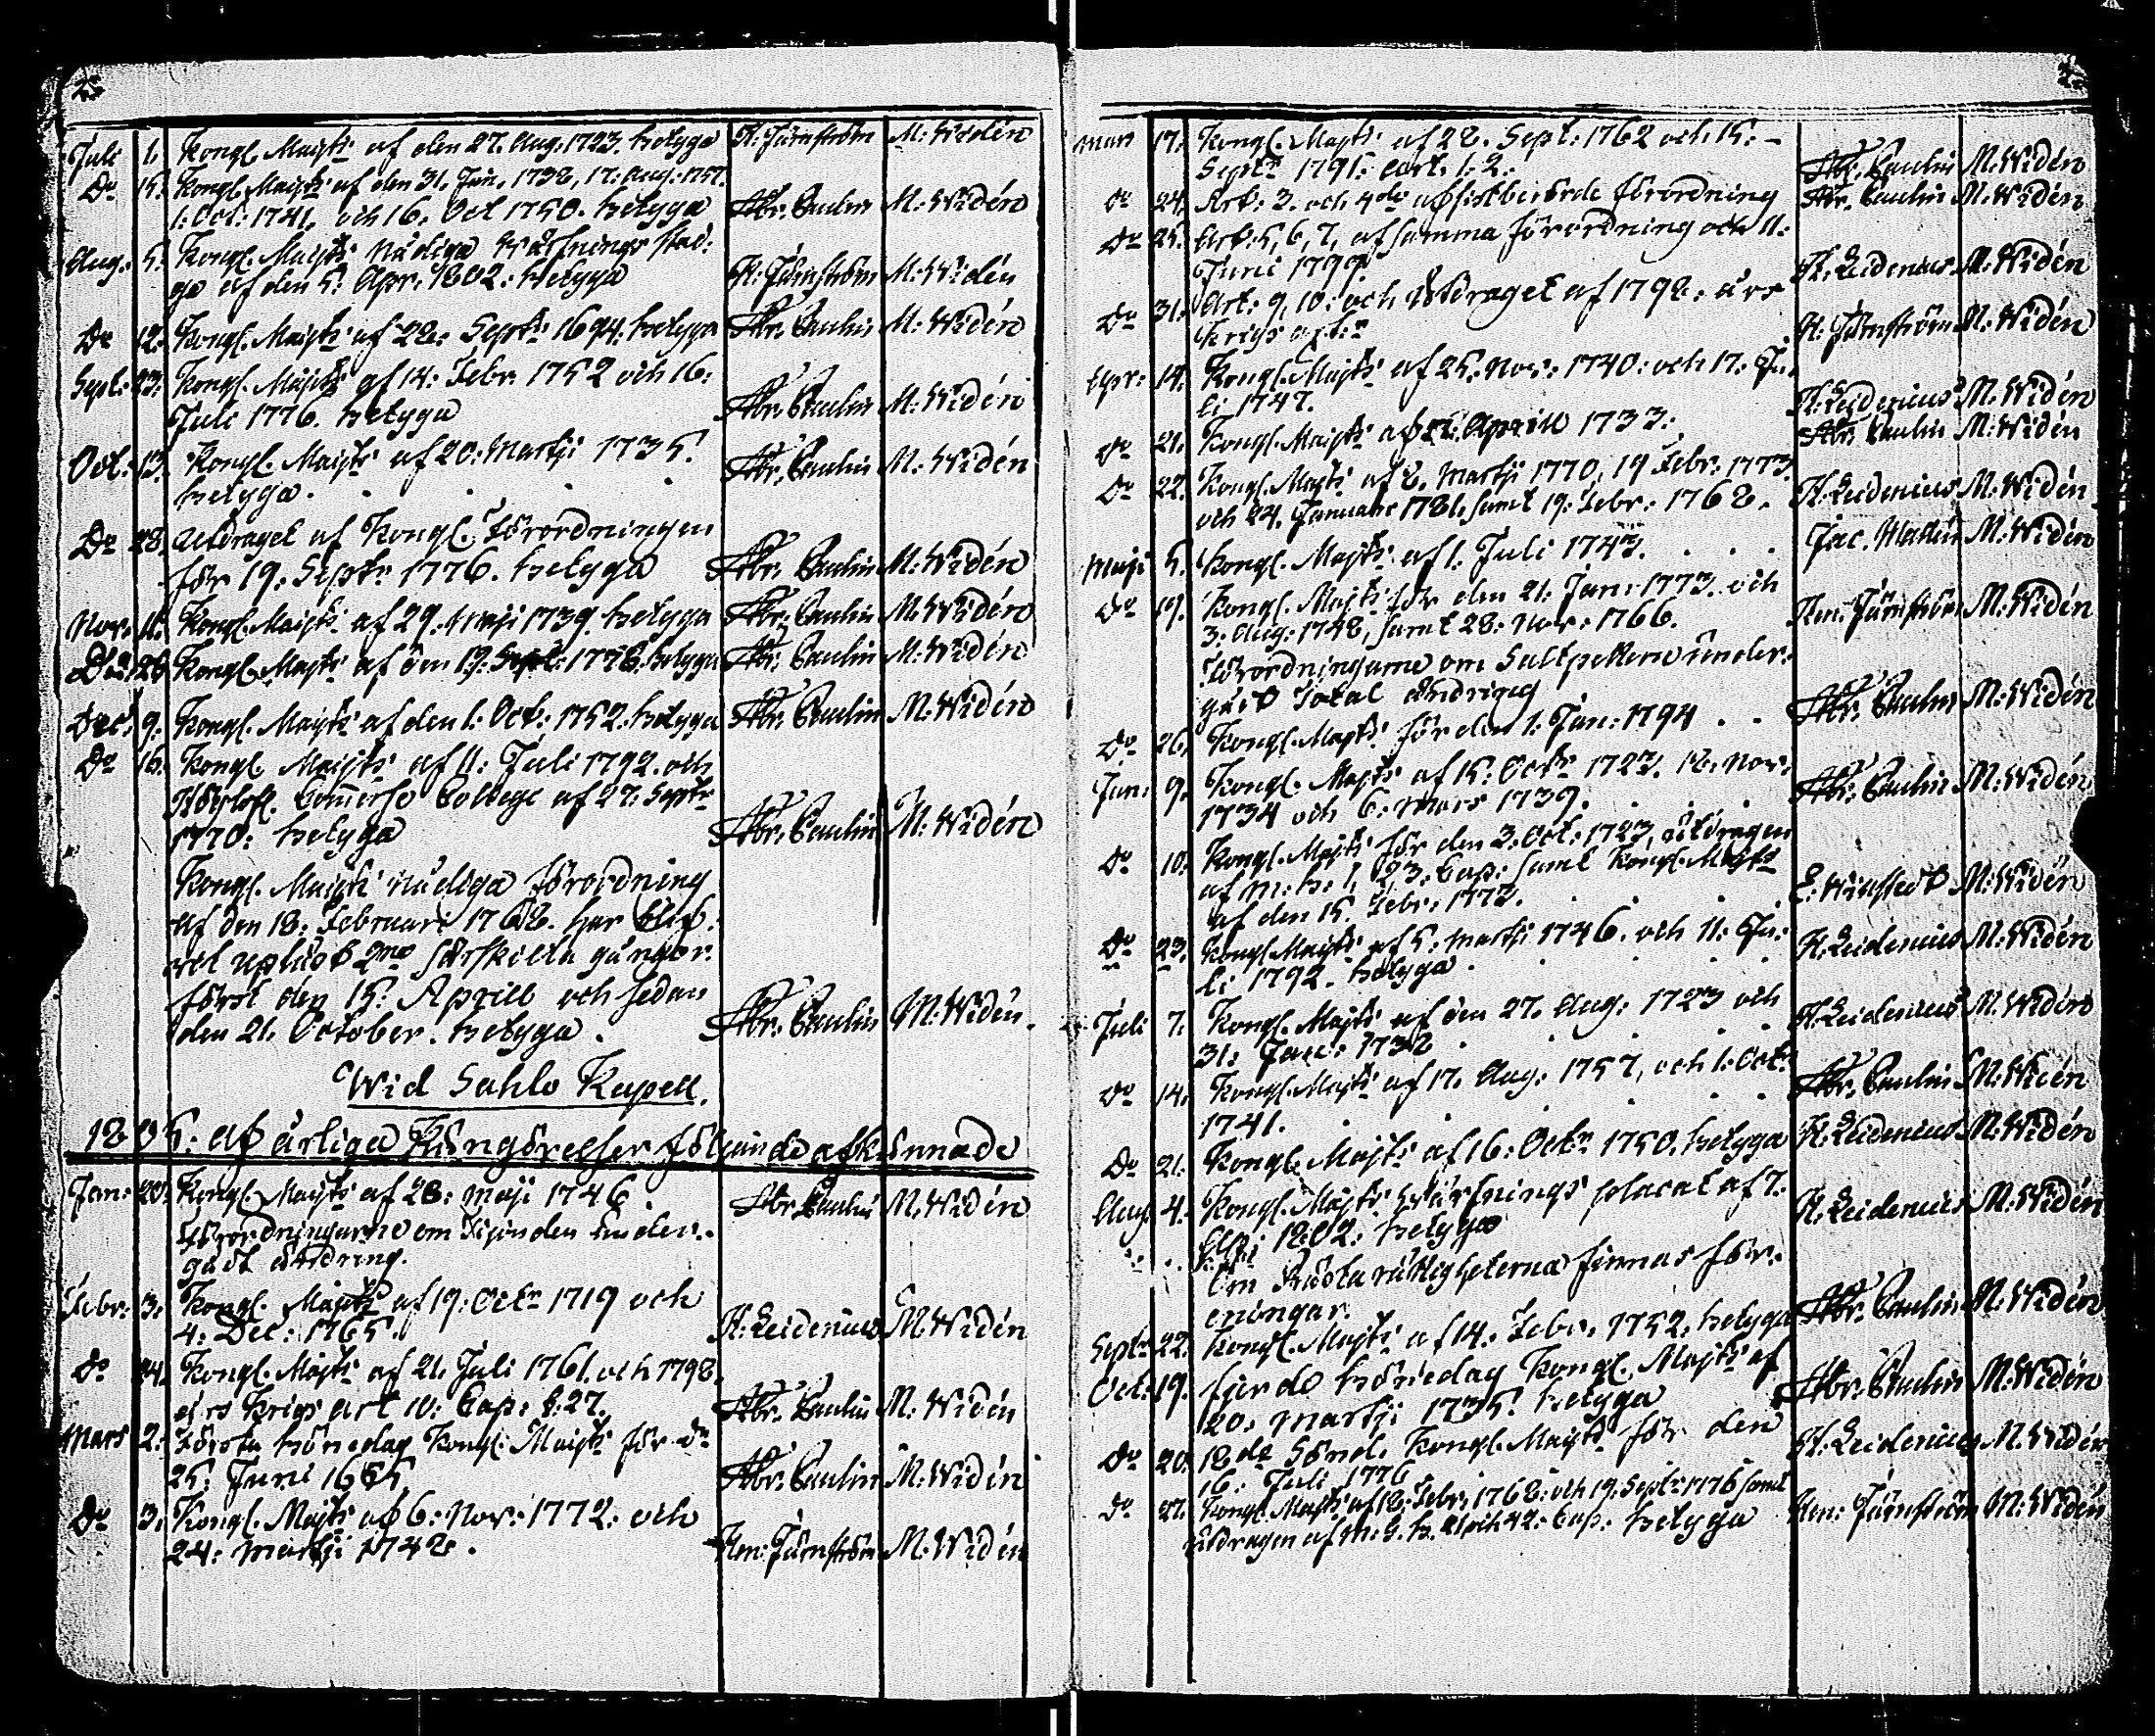 Juli 1. Kongl. Maijts af den 27. Aug. 1723. betyga H. Järnström M: Widén
Do 15. Kongl. Maijts af den 31. Jan. 1738, 17: Aug: 1757.
1: Oct: 1741. och 16. Oct 1750. betyga Abr. Paulin M: Widén
Aug. 5. Kongl. Maijts Nådiga Wärfnings Stad:
ga af den 5: Apr. 1802: betyga H: Järnström M: Widén
Do 12. Kongl. Maijts af 22: Septr 1694: betyga Abr. Paulin M: Widén
Sept: 23: Kongl. Maijts af 14: Febr. 1752 och 16:
Juli 1776. betyga Abr. Paulin M: Widén
Oct: 13. Kongl. Maijts af 20: Martji 1735.
betyga. Abr. Paulin M: Widén
Do 28. Utdraget af Kongl. Förordningen
för 19: Septr 1776. betyga Abr. Paulin M: Widén
Nov. 11. Kongl. Maijts af 29. Maji 1739. betyga Abr. Paulin M: Widén
Kongl. Majts af den 19: Sept: 1776. betyga Abr. Paulin M: Widén
Dec: 9. Kongl. Maijts af den 1: Oct: 1752. betyga Abr. Paulin M: Widén
Do 16. Kongl. Maijts af 11: Juli 1792. och
Höglofl. Com̃erse College af 27: Septr
1770: betyga Abr. Paulin M: Widén
Kongl. Maijts nådiga förordning
af den 18: Februari 1768. har blif:
vit upläst 2ne särskilta gångor.
först den 15: Aprill och sedan
den 21. October. betyga. Abr. Paulin M: Widén.
Wid Sahlo Kapell.
1805: af årliga Kungörelser följande afkunnade
Jan: 20. Kongl. Maijts af 28: Maji 1746. Abr. Paulin M: Widén
Förordningarne om Tijonden under-
gådt ändring.
Febr: 3. Kongl. Majts af 19: Octr 1719 och
4: Dec: 1765. H: Leidenius M: Widén
Do 24. Kongl. Majts af 21. Juli 1761. och 1798.
års Krigs art 10: Cap: §: 27. Abr. Paulin M: Widén
Mars 2. Första bönedag Kongl. Maijts för do
25. Juni 1665 Abr. Paulin M: Widén
Do 3. Kongl. Majts af 6: Nov: 1772: och
24: Martji 1748. Hen: Järnström M: Widén
Mars 17. Kongl. Majts af 28. Sept: 1762 och 15: -
Septr 1791: art. 1: 2. Abr. Paulin M: Widén
Do 24. Art: 3. och 4de af sistberörde förordning Abr. Paulin M: Widén
Do 25. Art: 5, 6, 7, af samma förordning och 11:
Juni 1799. H. Leidenius M: Widén
Do 31. Art: 9, 10: och Utdraget af 1798: års
Krigs art:r H: Järnström M: Widén
Apr: 14. Kongl. Majts af 25: Nov: 1740: och 17: Ju-
li 1747. H: Leidenius M: Widén
Do 21. Kongl. Maijts af Aprill 1733. Abr. Paulin M: Widén
Do 22. Kongl. Majts af 8. Martji 1770, 19 Febr. 1773
och 24. Januari 1781. samt 19: Febr: 1768. H: Leidenius M: Widén
Maji 5. Kongl. Majts af 1. Juli 1743. Jac. Matlin M: Widén
Do 19. Kongl. Majts för den 21. Jan: 1773. och
3: Aug: 1748, samt 28: Nov: 1766. Hen: Järnström M: Widén
Förordningarne om Saltpettern under-
gått total ändring
Do 26. Kongl. Majts för den 1: Jan: 1794 Abr. Paulin M: Widén
Jun: 9. Kongl. Majts af 15: Octr 1723. 12. Nov:
1734 och 6: Mars 1739. Abr. Paulin M: Widén
Do 10. Kongl. Majts för den 3: Oct: 1723, utdragen
af M: B: 1, 23: Cap: samt Kongl. Majts
af den 15. Febr: 1773. E: Winstedt M: Widén
Do 23. Kongl. Maijts af 5. Martji 1746. och 11: Ju-
li 1792. betyga. H: Leidenius M: Widén
Juli 7. Kongl. Majts af den 27. Aug: 1723 och
31: Jan: 1738 H: Leidenius M: Widén
Do 14. Kongl. Majts af 17. Aug: 1757, och 1: Oct:
1741. Abr. Paulin M: Widén
Do 21. Kongl. Majts af 16: Octr 1750. betyga H: Leidenius M: Widén
Aug: 4. Kongl. Majts Wärfnings placat af 7.
1802. betyga H: Leidenius M: Widén
Om finnas för-
eningar.
Septr 22. Kongl. Majts af 14. Febr. 1752. betyga Abr. Paulin M: Widén
Oct: 19. fjerde bönedag Kongl. Majts af
20: Martji 1735. betyga Abr. Paulin M: Widén
Do 20. 18de Sönd. Kongl. Maijts för den
16. Juli 1776 H: Leidenius M: Widén
Do 27. Kongl. Majts af 18: Febr: 1768: och 19: Septr 1776 samt
utdragen af M: B. 41 och 42: Cap: betyga Hen: Järnström M: Widén